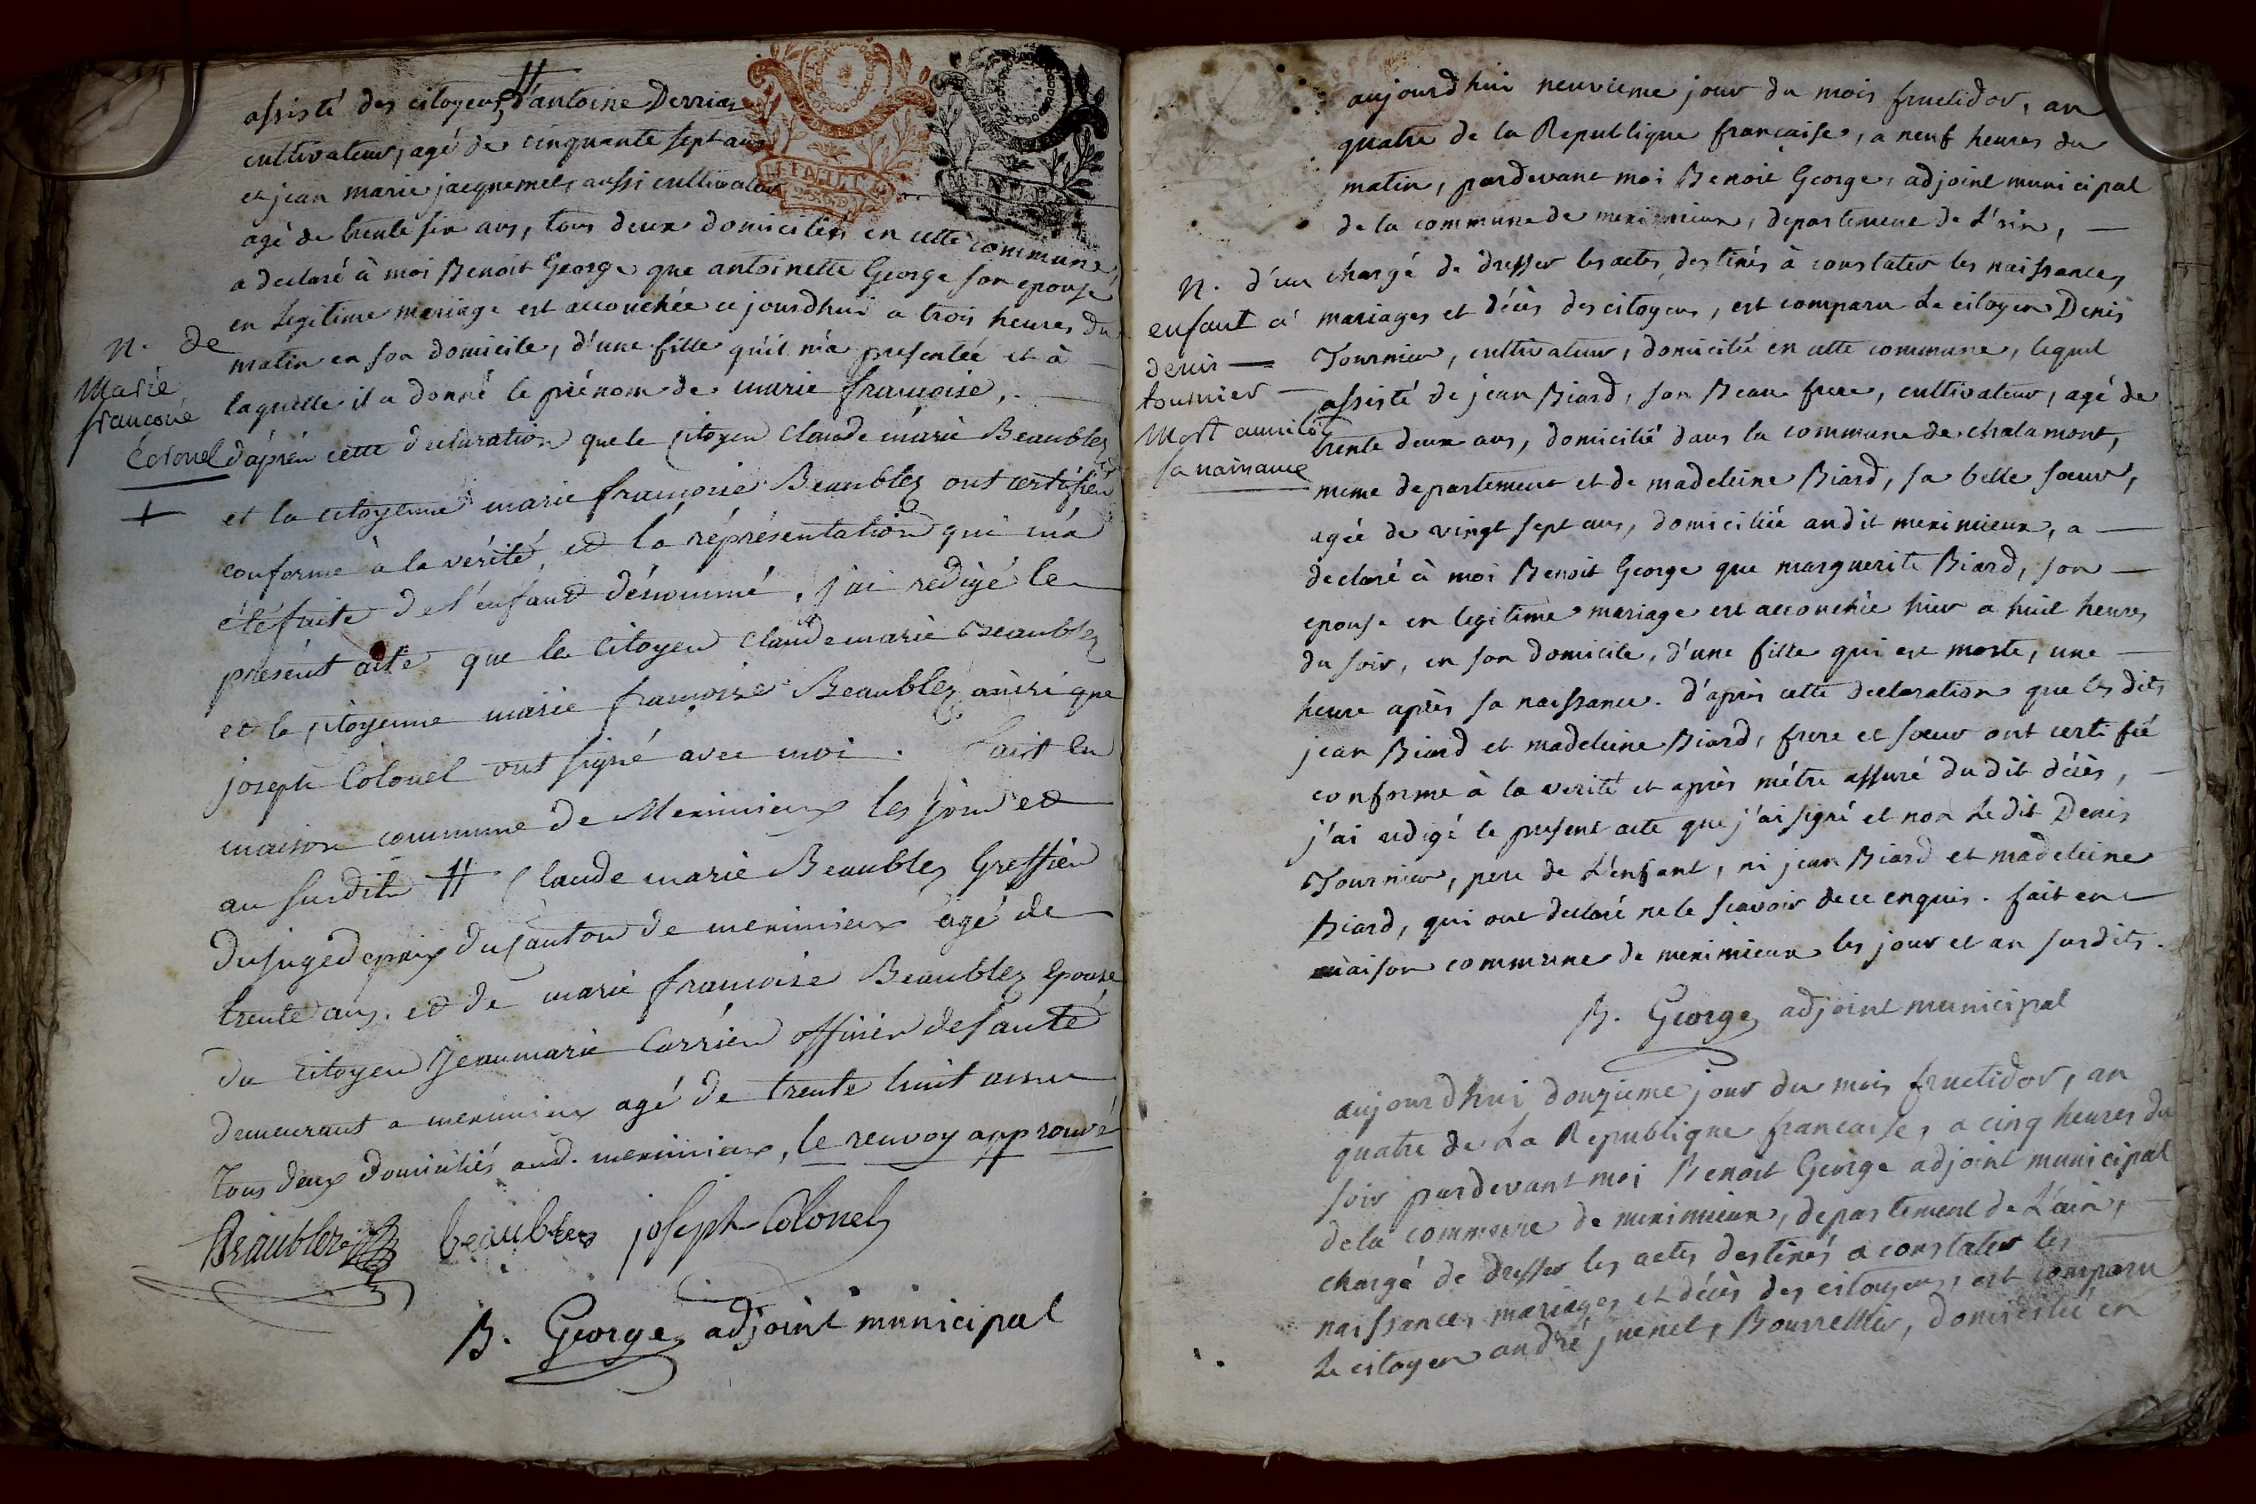 assisté des citoyens # d'antoine Derrias
cultivateur, agé de cinquante sept ans
et jean marie jacquemet, aussi cultivateur
agé de trente six ans, tous deux domiciliés en cette commune,
a declaré à moi Benoit George que antoinette George son epouse
en Legitime mariage est accouchée ce jourdhui a trois heures du
matin en son domicile, d'une fille qu'il m'a presentée et à
laquelle il a donné le prénom de marie françoise,
d'aprèu cette declaration que le Citoyen Claude marie Beaublez
et la citoyenne marie françoise Beaublez ont certifiéu
conforme à la vérité, et la réprésentation qui m'a
été faite de l'enfant dénommé, j'ai redigé le
présent acte que le Citoyen Claude marie Beaublez
et la Citoyenne marie françoise Beaublez ainsi que
joseph Colonel ont signé avec moi. fait en
maison commune de Meximieux les jour et
an susdits # Claude marie Beaublez Greffier
du juge de paix du Canton de meximieux agé de
trente ans. et de marie françoise Beaublez Epouse
du Citoyen Jeanmarie Carrier officier de santé
demeurant a meximieux agé de trente huit ans
tous deux Domiciliés aud. meximieux, le renvoy approuvé
Beaublez beaublez joseph Colonel
B. George adjoint municipal
N. de
Marie
francoise
Colonel
+
aujourdhui neuvieme jour du mois fructidor, an
quatre de la Republique française, a neuf heures du
matin, pardevant moi Benoit George, adjoint municipal
de la commune de meximieux, departement de L'ain,
chargé de dresser les actes destinés à constater les naissances,
mariages et décès des citoyens, est comparu Le citoyen Denis
Tournier, cultivateur, domicilié en cette commune, lequel
assisté de jean Biard, son Beau frere, cultivateur, agé de
trente deux ans, domicilié dans la commune de chalamont,
meme departement et de madeleine Biard, sa belle soeur,
agée de vingt sept ans, domiciliée audit meximieux, a
declaré à moi Benoit George que marguerite Biard, son
epouse en legitime mariage est accouchée hier a huit heures
du soir, en son domicile, d'une fille qui est morte, une
heure après sa naissance. d'après cette declaration que les dits
jean Biard et madeleine Biard, frere et soeur ont certifié
conforme à la verité et après m'être assuré du dit décès,
j'ai redigé le present acte que j'ai signé et non Le dit Denis
Tournier, pere de L'enfant, ni jean Biard et madeleine
Biard, qui ont declaré ne le scavoir de ce enquis. fait en
maison commune de meximieux les jour et an susdits.
B. George adjoint municipal
N. d'un
enfant à
denis
tournier
Mort aussitôt
sa naissance
aujourdhui douzieme jour du mois fructidor, an
quatre de La Republique francaise, a cinq heures du
soir pardevant moi Benoit George adjoint municipal
de la commune de meximieux, departement de L'ain,
chargé de dresser les actes destinés a constater les
naissances, mariages et décès des citoyens, est comparu
Le citoyen andré juenet, Bourrellier, domicilié en